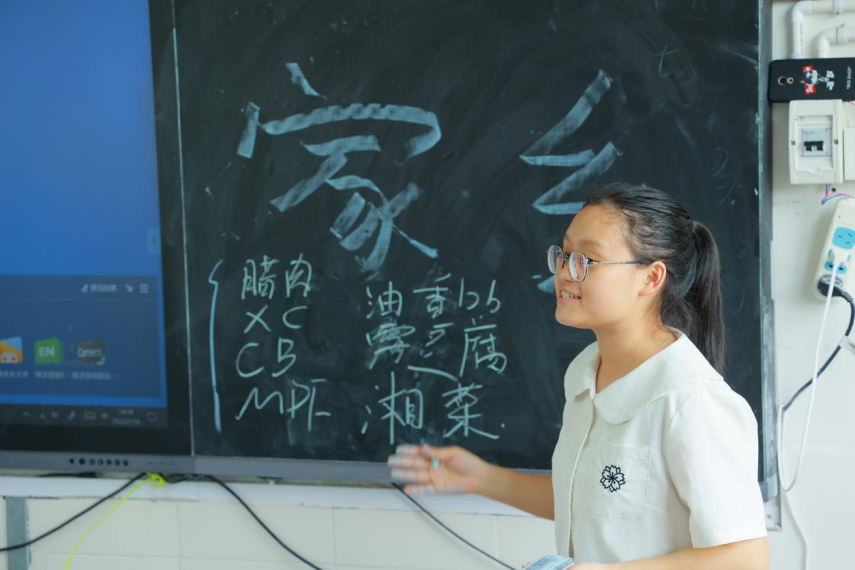 家乡
腊肉 油香bb
XC 霉豆腐
CB 湘菜.
MPF
EN